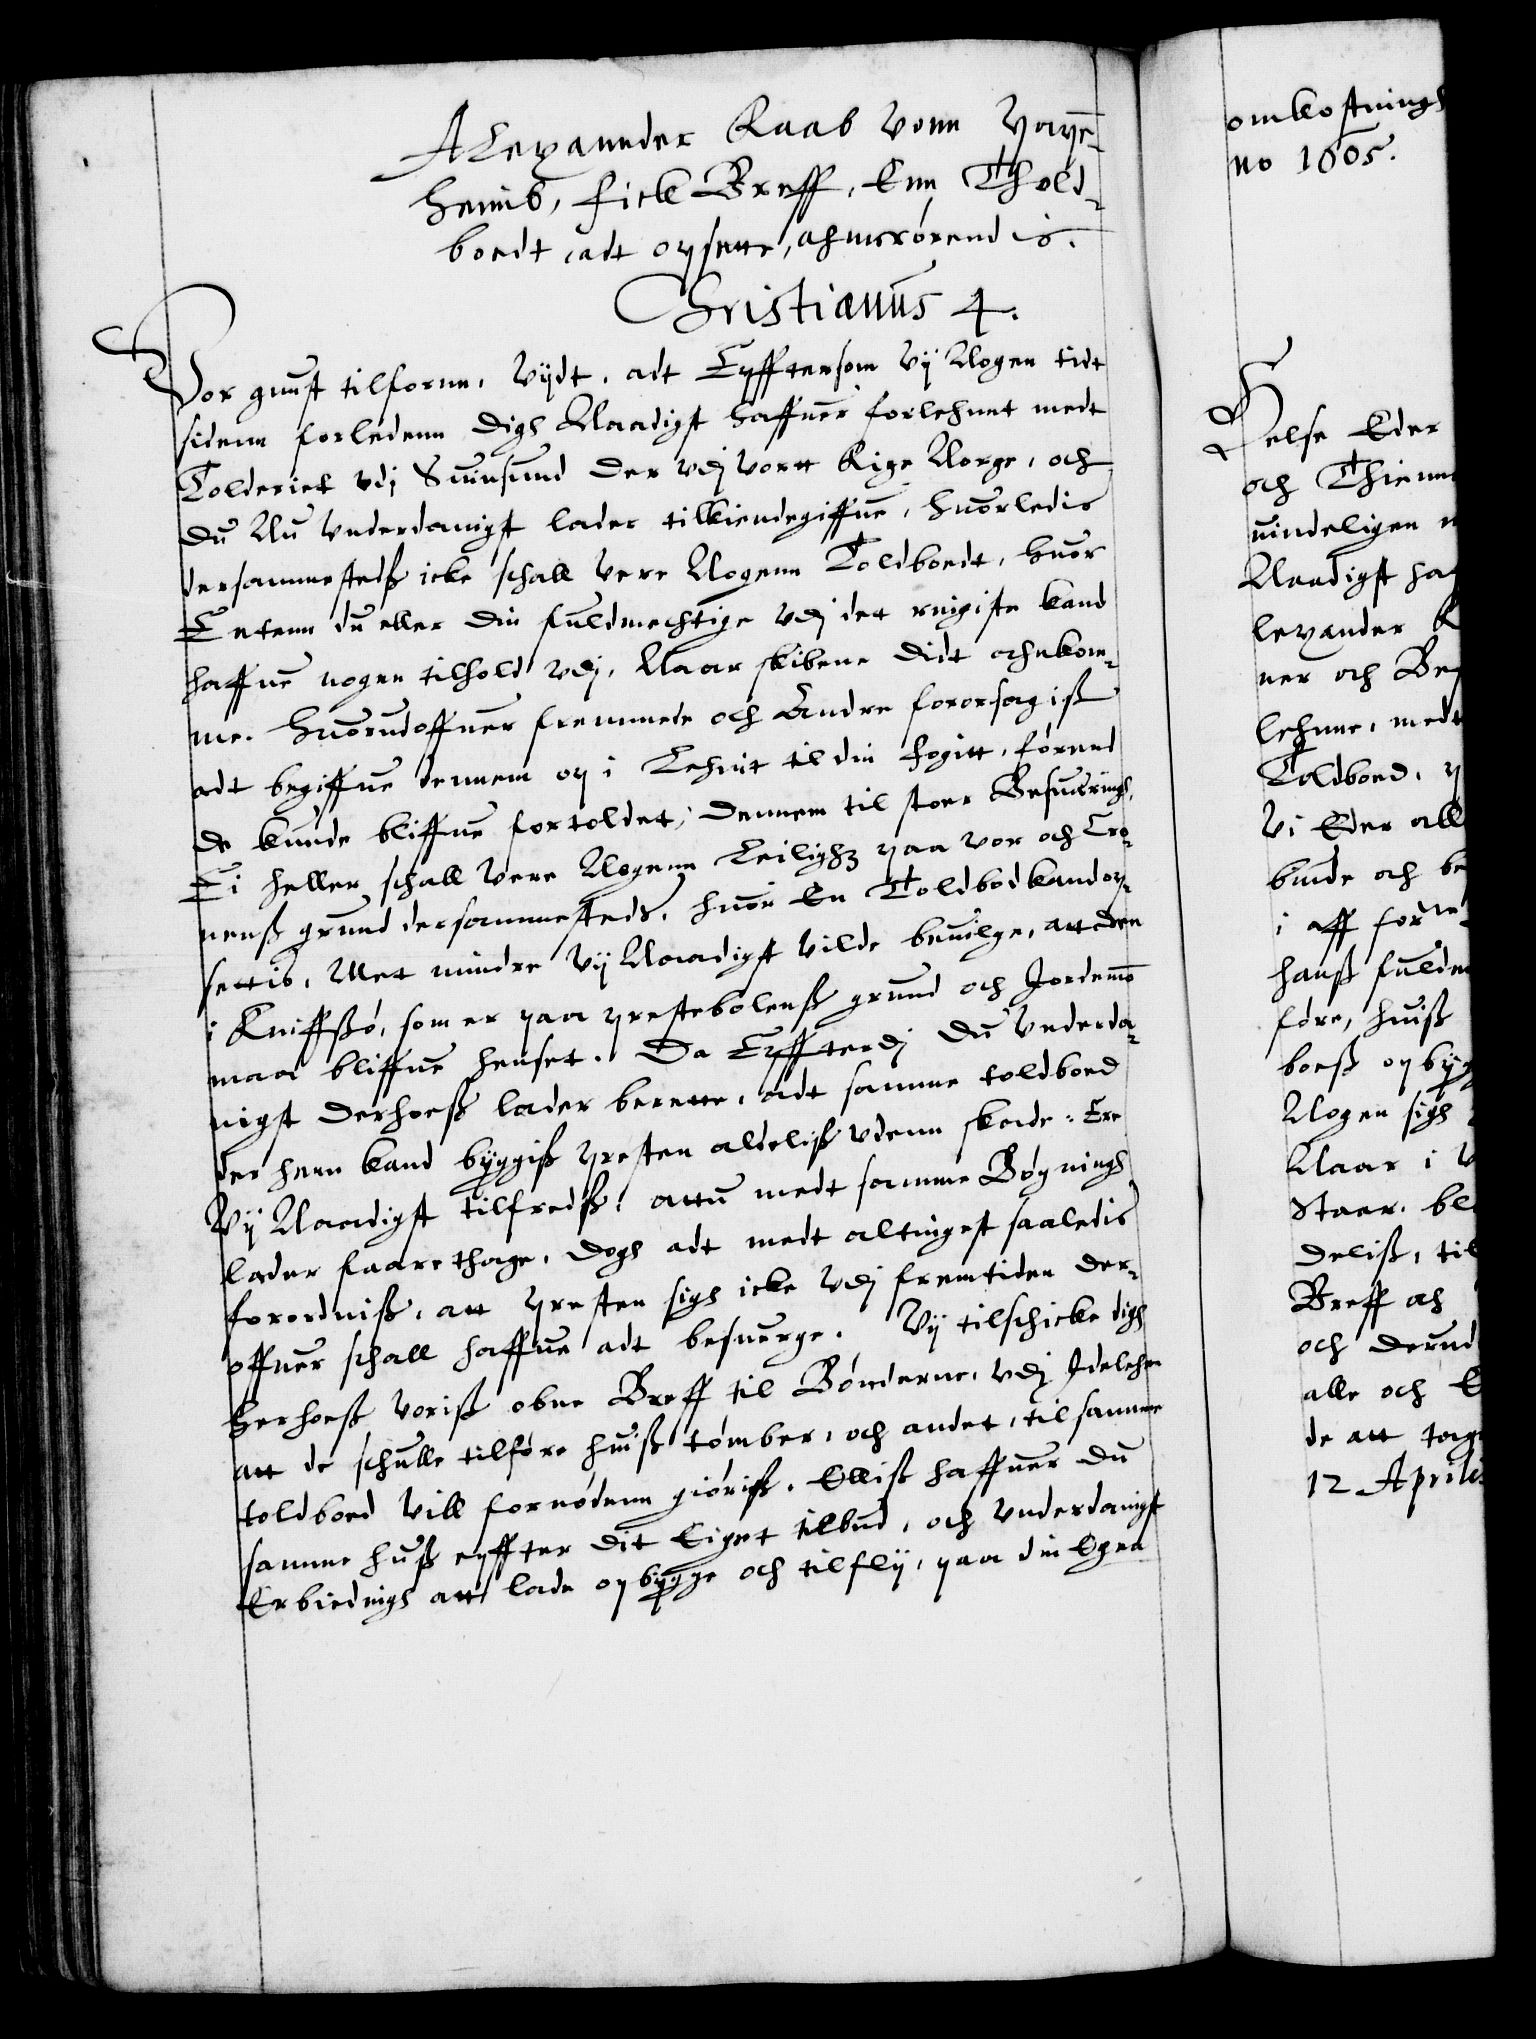 Alexannder Raab vonn Papē-
heimb, fick Breff, Enn Thold-
boedt, adt opsette, anrørendis.
Christianus 4.
Vor gunst tilfornn, Vijdt, adt Epffttersom Vij Nogen tidt
sidenn forledenn digh Naadigst haffuer forlehnnt medt
Tolderiet vdj Suinsund der vdj vortt Rige Norge, och
du Nu Vnderdanigst lader tilkiendegiffue, huorledis
dersammestedß icke schall Vere Nogenn Toldboedt, huor
Entenn du eller din fuldmechtige vdj det ringiste kand
haffue nogen tilhold vdj, Naar skibene didt ahnkom-
me. Huorudoffuer fremmede och Andre fororsagiß
adt begiffue dennem op i Lehnit til din fogitt, førend
de kunde bliffue fortoldet, dennem til stoer Besueringh,
Ei heller schall Vere Nogenn Leilighz paa vor och Cro-
nenß grund dersammesteds, huor En Toldbod kand op-
settis, Met mindre Vij Naadigst Vilde beuilge, att den
i Kniffßø, som er paa prestebolenß grund och Jordemō
maa bliffue henset. Da Epffterdj du Vnderda-
nigst derhoeß lader berette, adt samme toldboed
der henn kand byggiß presten aldeliß vdenn skade: Ere
Vij Naadigst tilfredß, attu medt samme Bygningh
lader faare thage, dogh adt medt altingest saaledis
forordniß, att presten sigh icke vdj fremtiden der-
offuer schall haffue adt besuerge. Vij tilschicke digh
herhoeß voriß obne Breff til Bønderne, vdj Idelehen
att de schulle tilføre huiß tømber, och andet, til samme
toldboed Vill fornødenn giøriß. Elliß haffuer du
samme huß epffter dit Eiget tilbud, och Vnderdanigst
Erbiedingh att lade opbygge och tilflij, paa din Egen
omkostningh
no 1605.
Helse Eder
och Thienn
uindeligen
Naadigst haf
lexander R
ner och Be
lehnne, medt
Toldboed,
Vi Eder all
binde och be
i aff forne
hanß fuldm
føre, huiß
boeß opbyg
Nogen sigh
Naar i
Staer. bl
deliß, til
Breff ah
och derud
alle och E
de att tag
12 Apriles